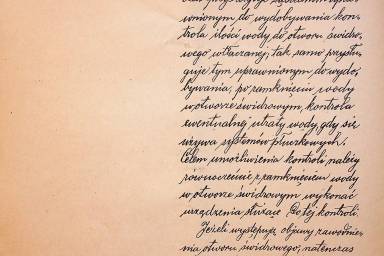 wnionym do wydobywania kon-
trola ilości wody do otworu świdro-
wego wtłaczanej, tak samo przysłu-
guje tym uprawnionym do wydo-
bywania, po zamknięciu wody
w otworze świdrowym, kontrola
ewentualnej utraty wody, gdy się
używa systemów płuczkowych.
Celem umożliwienia kontroli, należy
równocześnie z zamknięciem wody
w otworze świdrowym wykonać
urządzenia służące do tej kontroli.
Jeżeli występują objawy zawodnie-
nia otworu świdrowego, natenczas